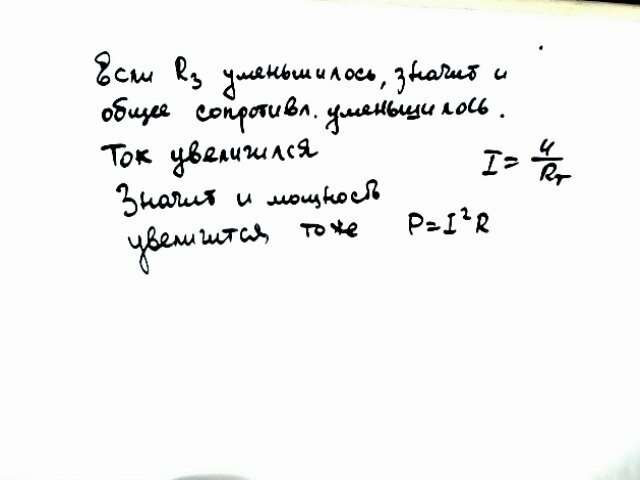 Если R₃ уменьшилось, значит и
общее сопротивл. уменьшилось.
Ток увеличился I = U/Rт
Значит и мощность
увеличится тоже P=I²R